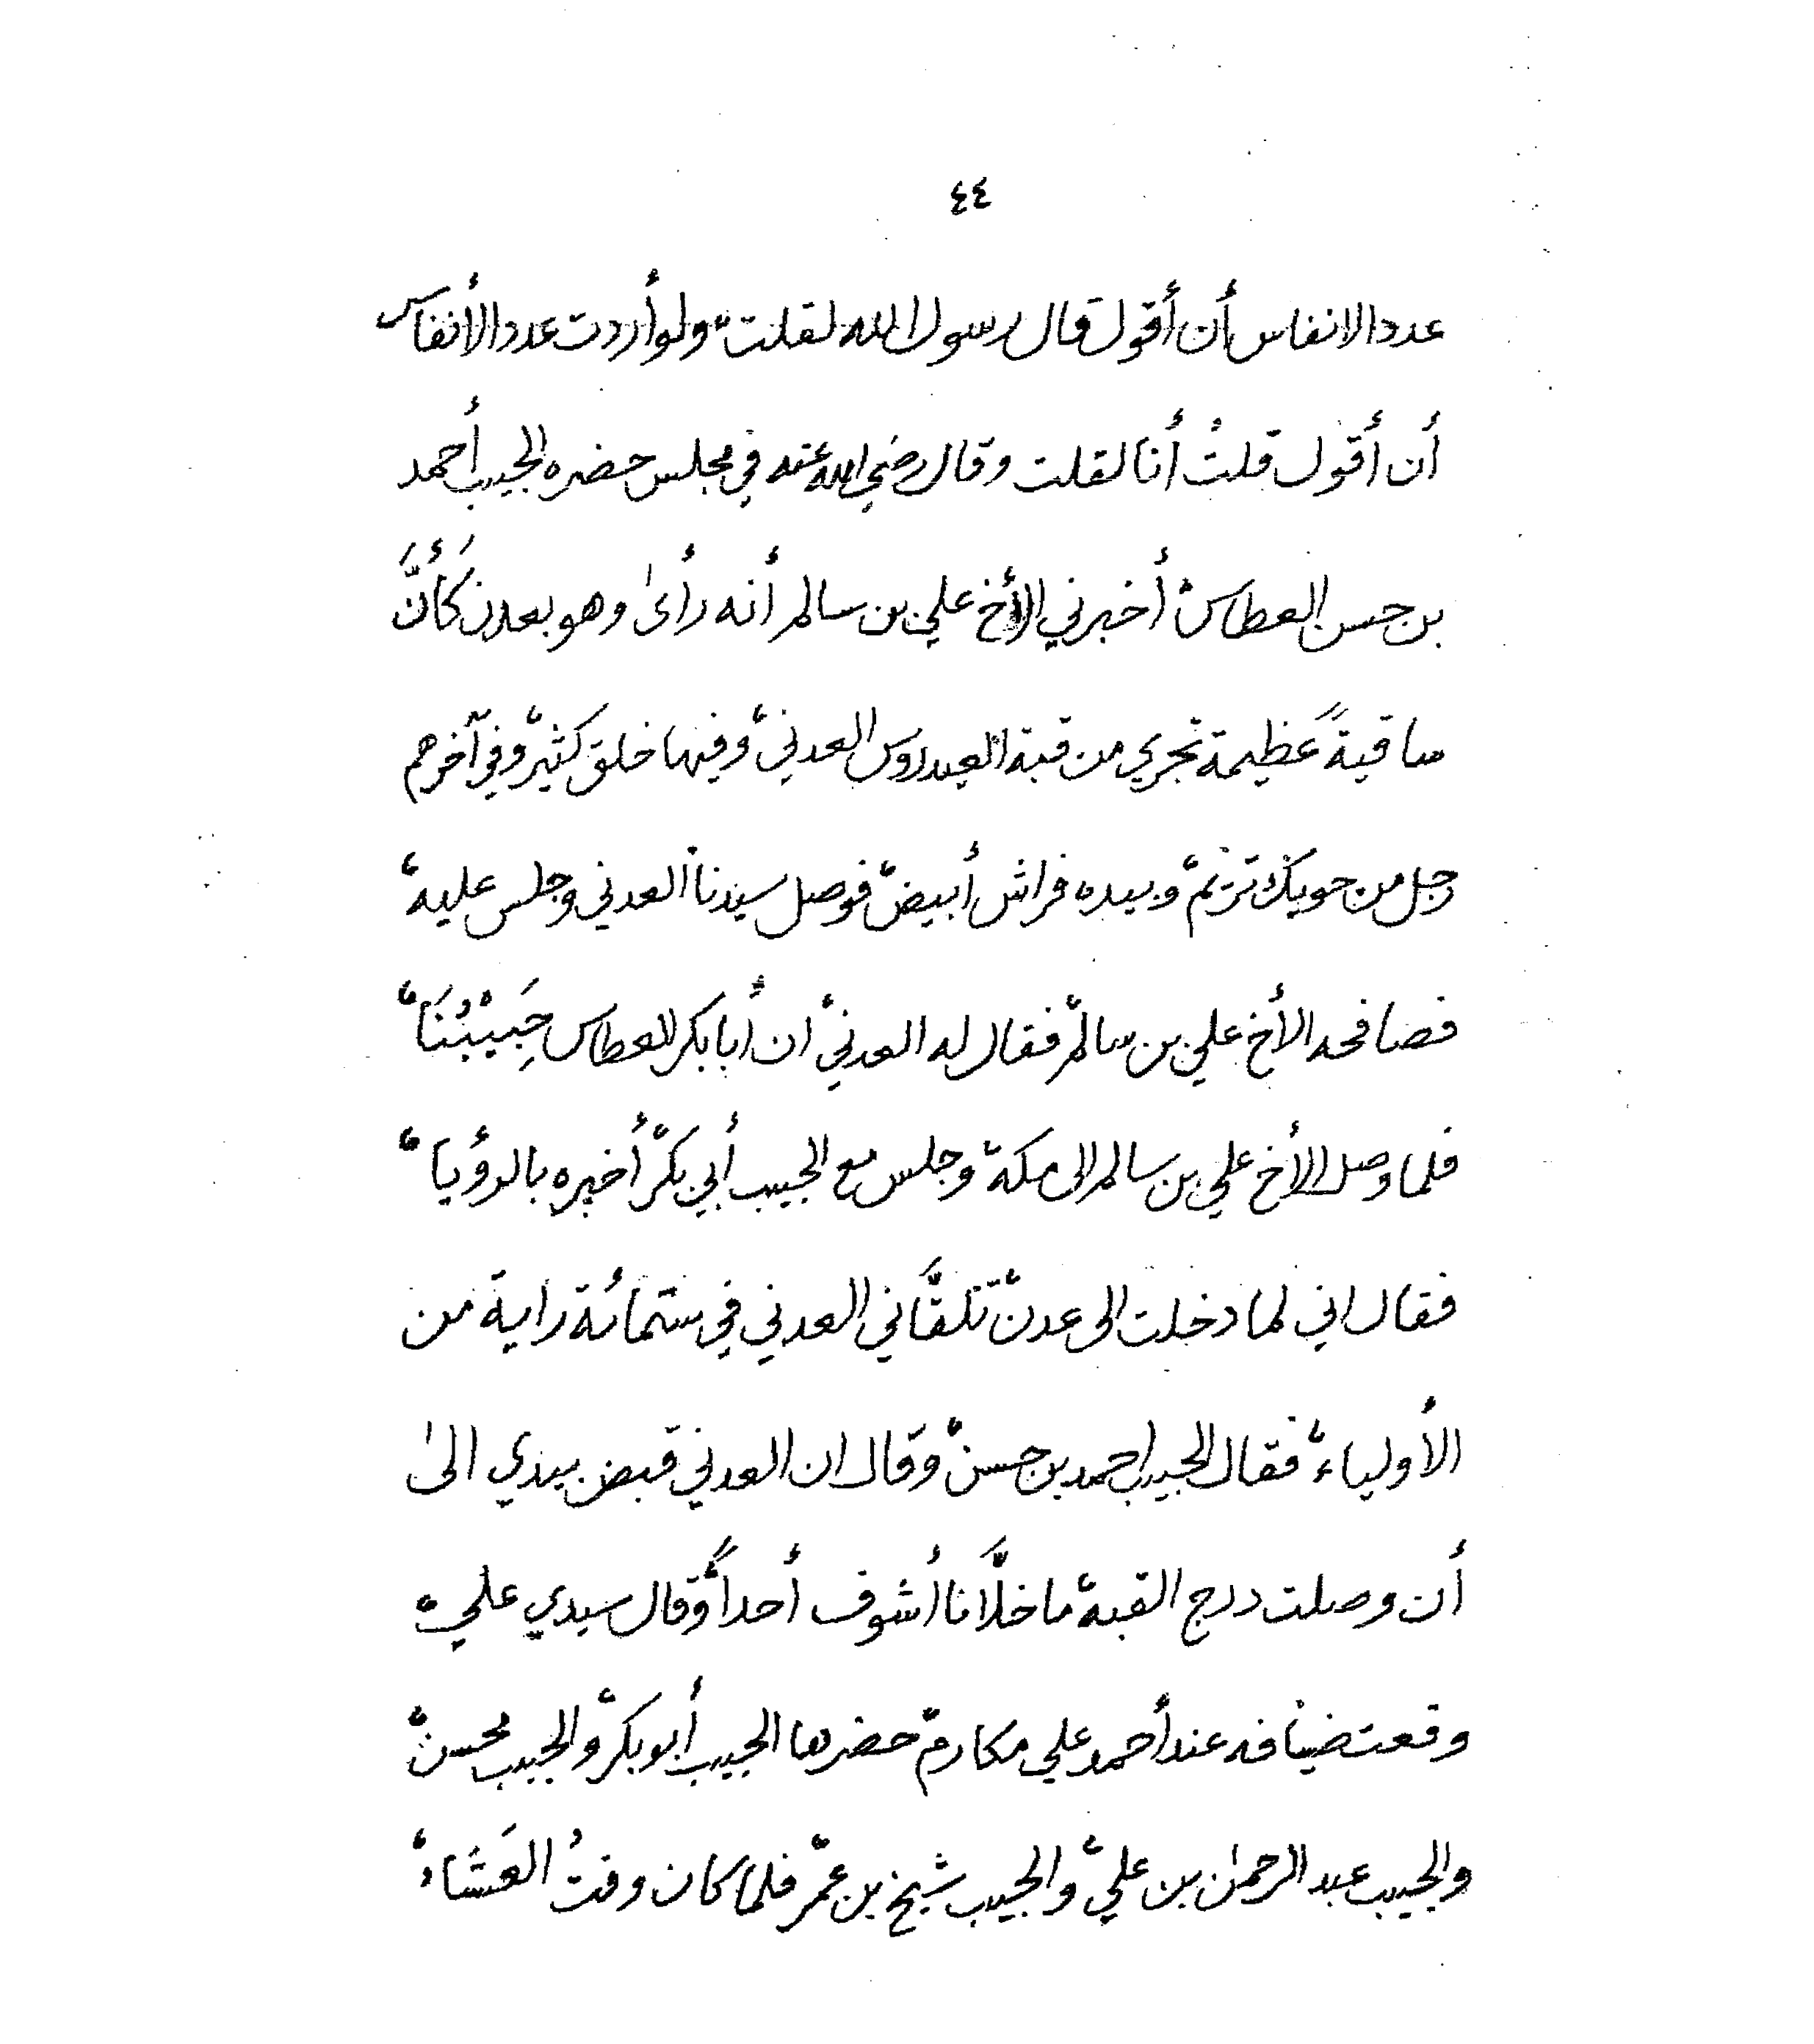 ٤٤
عدد الانفاس أن أقول قال رسول الله لقلت، ولو أردت عدد الأنفاس
أن أقول قلتُ أنا لقلت وقال رضي الله عنه في مجلس حضره الحبيب أحمد
بن حسن العطاس، أخبرني الأخ علي بن سالم أنه رأىٰ وهو بعدن كَأَنَّ
ساقيةً عظيمة تجري من قبة العيدروس العدني، وفيها خلق كثير، وفي آخرهم
رجل من حويك تريم، وبيده فراش أبيض، فوصل سيدنا العدني وجلس عليه،
فصافحه الأخ علي بن سالم، فقال له العدني، ان أبابكر العطاس حَبِيْبُنَا،
فلما وصل الأخ علي بن سالم الى مكة، وجلس مع الحبيب أبي بكر، أخبره بالرؤيا،
فقال اني لما دخلت الى عدن، تلقَّاني العدني في ستمائة راية من
الأولياء، فقال الحبيب احمد بن حسن، وقال ان العدني قبض بيدي الىٰ
أن وصلت درج القبة، ما خلَّانا أشوف أحداً، وقال سيدي علي،
وقعت ضيافه عند أحمد علي مكارم، حضرها الحبيب أبوبكر، والحبيب محسن،
والحبيب عبد الرحمٰن بن علي، والحبيب شيخ بن عمر، فلما كان وقتُ العَشَاء،